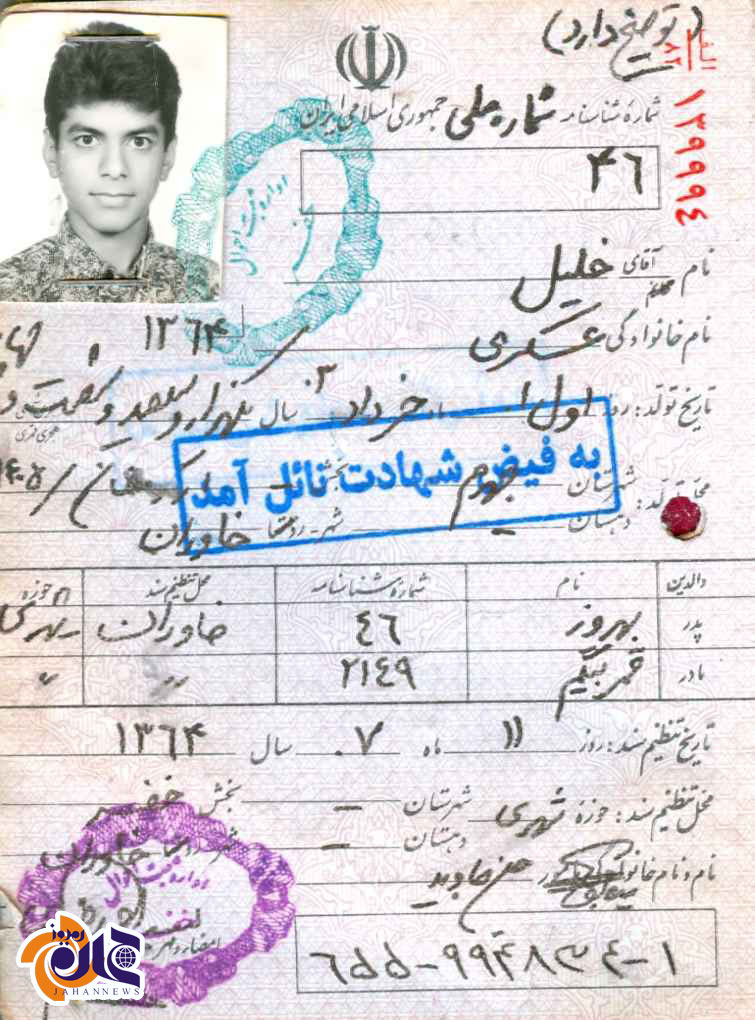 (توضیح دارد)
الف
۸۲
۱۳۹۹۹۴
جمهوری اسلامی ایران
شماره شناسنامه
۴۶
نام آقای خلیل
نام خانوادگی عسکری
۱۳۶۴
تاریخ تولد: روز اول ۱ ماه خرداد ۳ سال یکهزار و سیصد و شصت و
به فیض شهادت نائل آمد
محل تولد: شهرستان جهرم بخش
دهستان شهر - روستا خاوران
والدین نام شماره شناسنامه محل تنظیم سند حوزه
پدر بهروز ۴۶ خاوران
مادر قمر بیگم ۲۱۴۹ " "
تاریخ تنظیم سند: روز ۱۱ ماه ۷ سال ۱۳۶۴
محل تنظیم سند: حوزه شهری شهرستان – بخش خفر
دهستان – شهر خاوران
نام و نام خانوادگی
اداره ثبت احوال
۶۵۵-۹۹۴۸۳۴-۱
جهان
امروز
JAHANNEWS